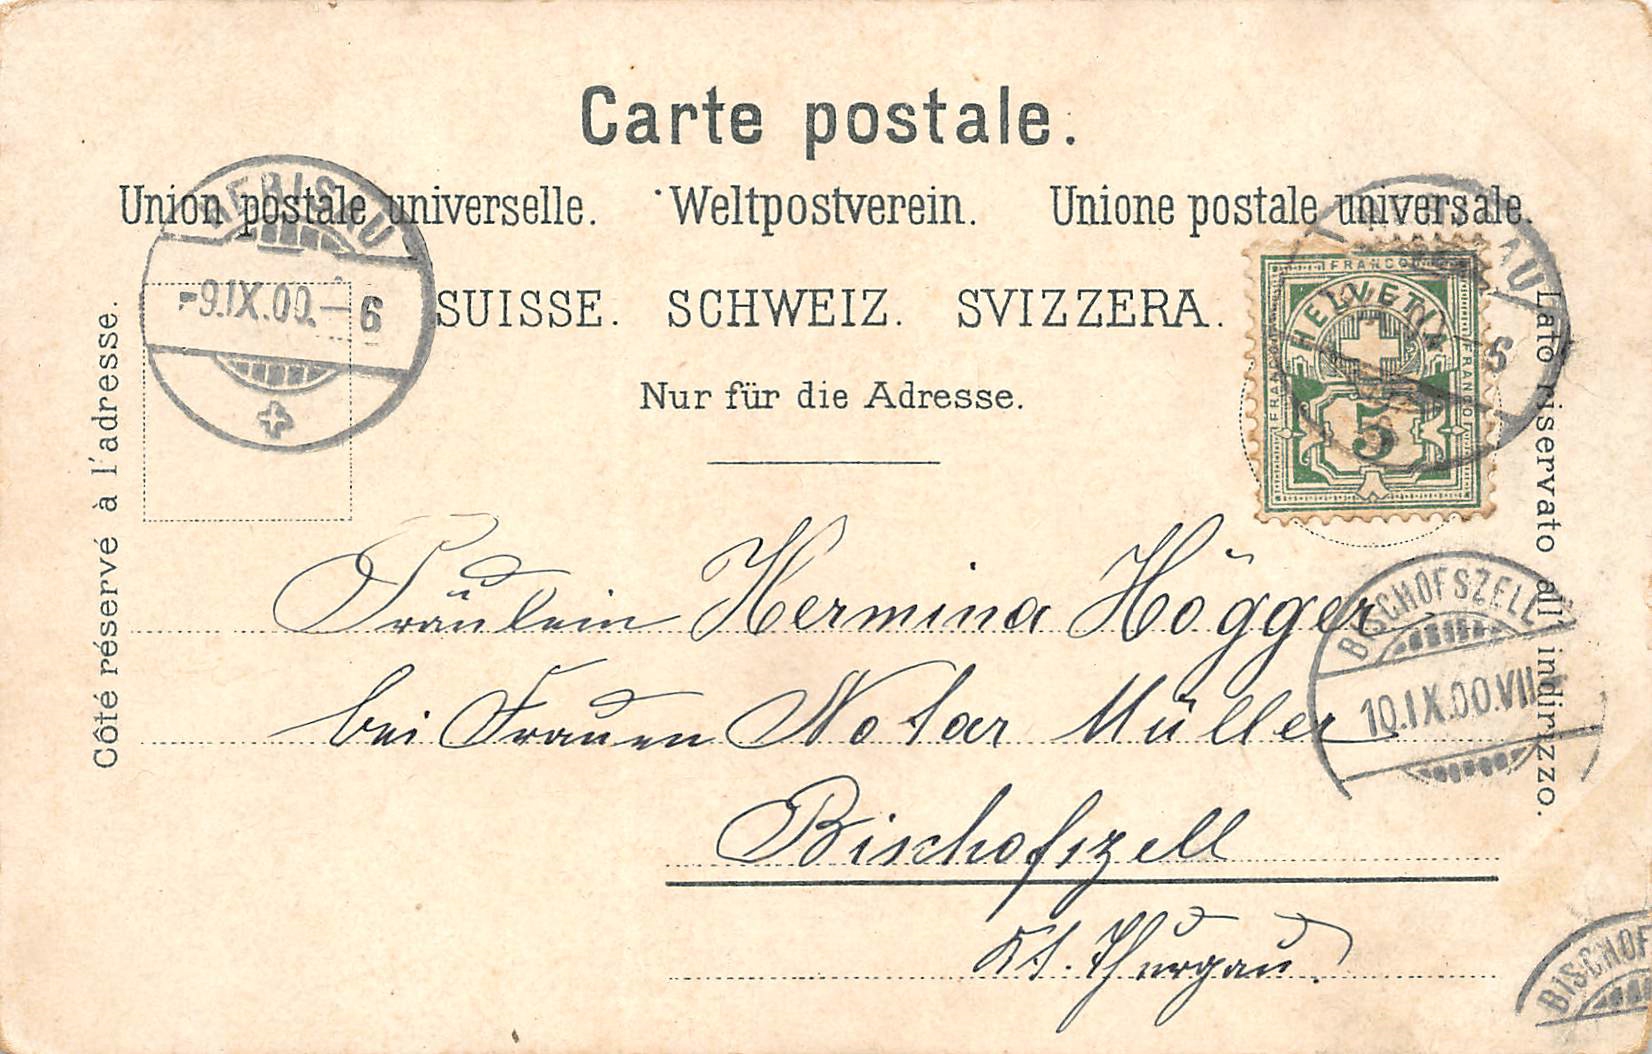 Carte postale.
Union postale universelle. Weltpostverein. Unione postale universale.
SUISSE. SCHWEIZ. SVIZZERA.
Nur für die Adresse.
Côté réservé à l'adresse.
Lato riservato all' indirizzo.
HERISAU
-9.IX.00.-6
FRANCO
FRANCO
FRANCO
HELVETIA
5
AU
6
BISCHOFSZELL
10.IX.00.VII
Fräulein Hermina Högger
bei Frauen Notar Müller
Bischofszell
Kt. Thurgau.
BISCHOF